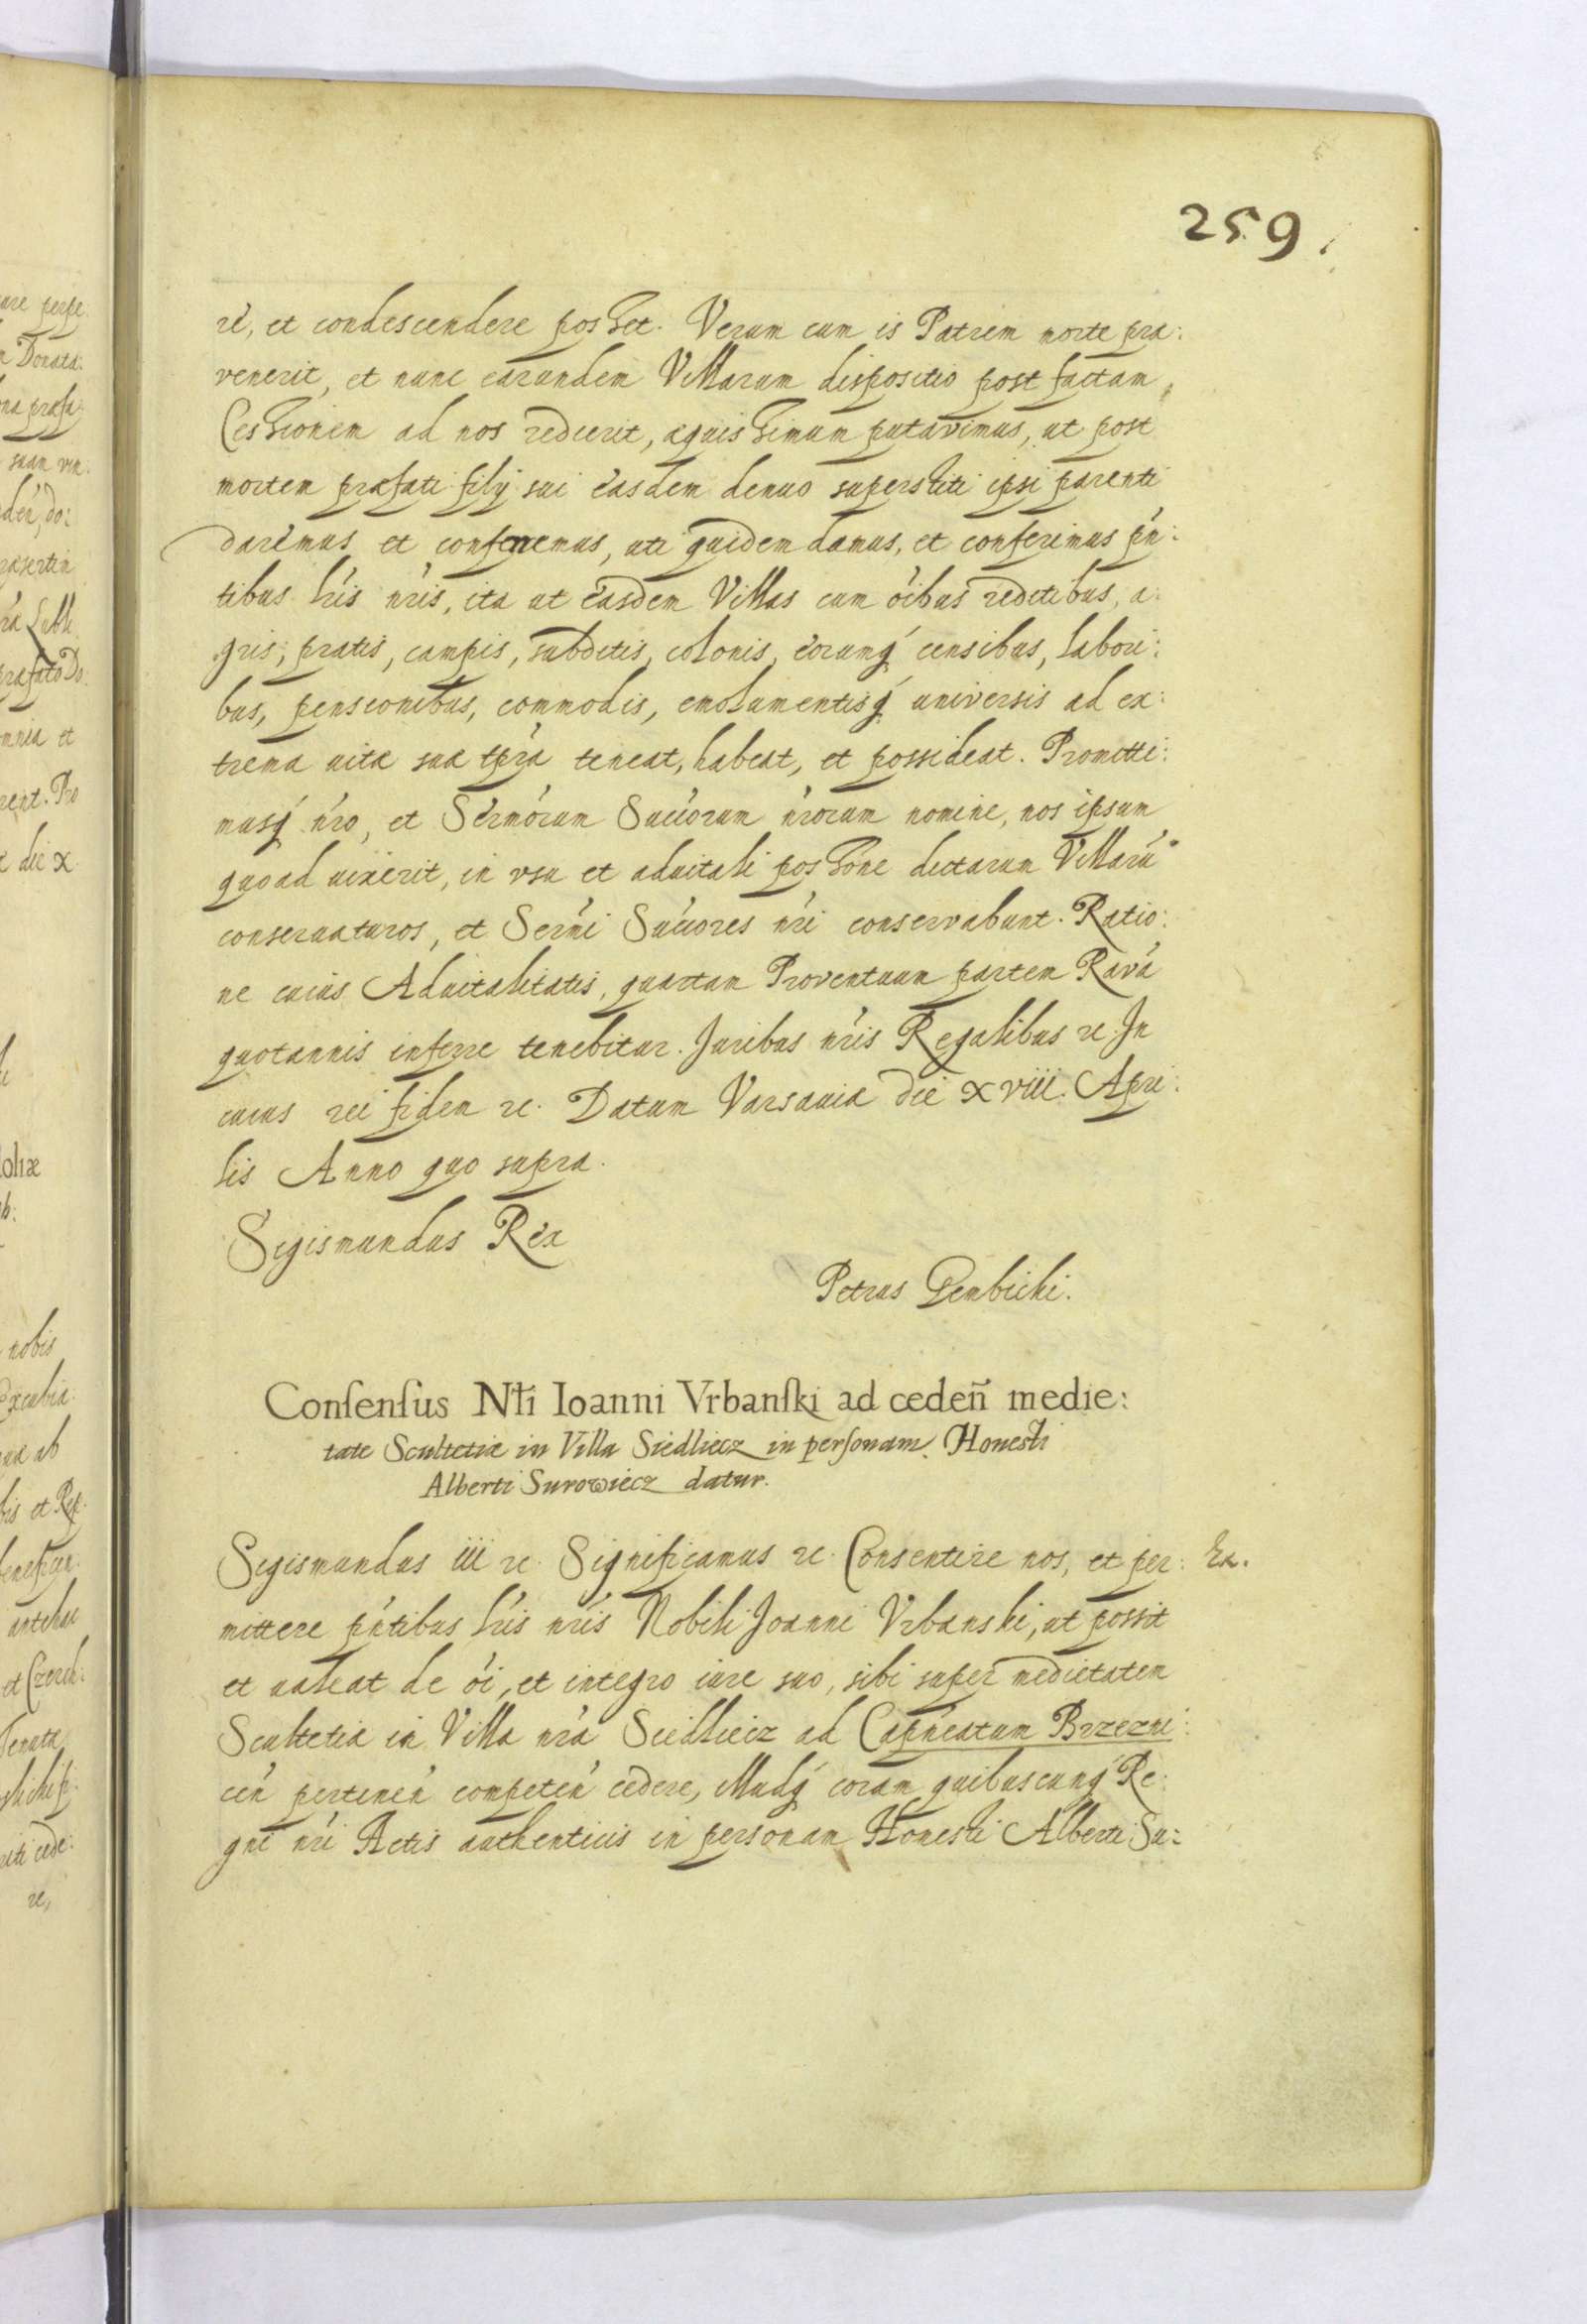 259.
re, et condescendere posset. Verum cum is Patrem morte præ:
venerit, et nunc earundem Villarum dispositio post factam
Cessionem ad nos redierit, æquissimum putavimus, ut post
mortem præfati filij sui easdem denuo superstiti ipsi parenti
daremus et conferremus, uti quidem damus, et conferimus pñ:
tibus lris nris, ita ut easdem Villas cum oibus reditibus, a:
gris, pratis, campis, subditis, colonis, eorumq́ censibus, labori:
bus, pensionibus, commodis, emolumentisq́ universis ad ex:
trema uitæ suæ tpra teneat, habeat, et possideat. Promitti:
musq́ nro, et Sermorum Succorum nrorum nomine, nos ipsum
quoad uixerit, in vsu et aduitali possone dictarum Villarũ
conseruaturos, et Sermi Succores nri conservabunt. Ratio:
ne cuius Aduitalitatis, quartam Proventuum partem Ravã
quotannis inferre tenebitur. Juribus nris Regalibus &c. In
cuius rei fidem &c. Datum Varsauiæ die xviii. Apri:
lis Anno quo supra.
Sigismundus Rex
Petrus Gembicki.
Consensus Nbli Ioanni Vrbanski ad cedeñ medie:
tate Scultetiæ in Villa Siedliecz in personam Honesti
Alberti Surowiecz datur.
Sigismundus iii &c. Significamus &c. Consentire nos, et per: Ex.
mittere pñtibus lris nris Nobili Joanni Vrbanski, ut possit
et ualeat de oi, et integro iure suo, sibi super medietatem
Scultetiæ in Villa nra Siedliecz ad Capneatum Brzezni:
cen pertinen competen cedere, illudq́ coram quibuscunq́ Re:
gni nri Actis authenticis in personam Honesti Alberti Su: